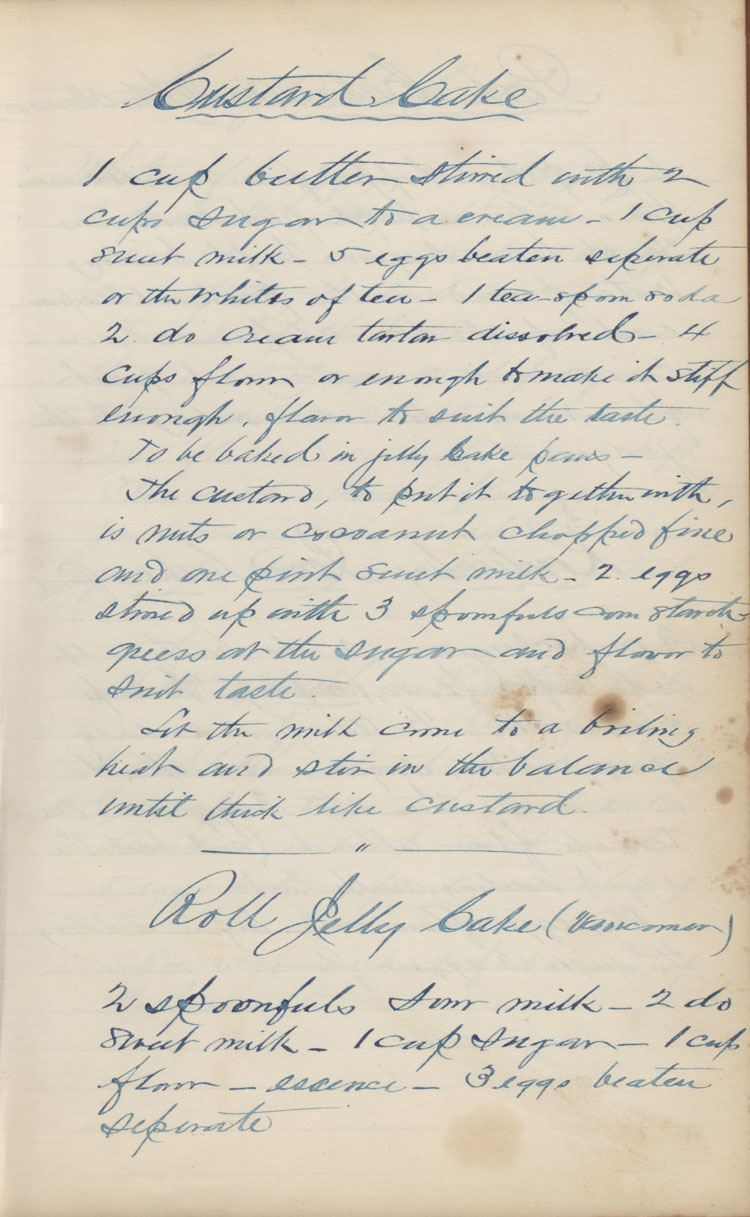 Custard Cake
1 cup butter stirred with 2
cups sugar to a cream - 1 cup
sweet milk - 5 eggs beaten seperate
or the whites of ten - 1 tea-spoon soda
2 do cream tartar dissolved - 4
cups flour or enough to make it stiff
enough, flavor to suit the taste.
To be baked in jelly cake pans -
The custard, to put it together with,
is nuts or cocoanut chopped fine
and one pint sweet milk - 2 eggs
stirred up with 3 spoonfuls corn starch -
guess at the sugar and flavor to
suit taste.
Let the milk come to a boiling
heat and stir in the balance
until thick like custard.
"
Roll Jelly Cake (Vancouver)
2 spoonfuls sour milk - 2 do
sweet milk - 1 cup sugar - 1 cup
flour - essence - 3 eggs beaten
seperate